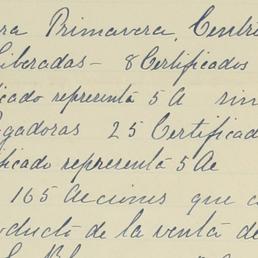 ra Primavera, Centri
Liberadas - 8 Certificados
icado representa 5 A
gadoras 25 Certificad
ificado representa 5 Ac
165 Acciones que c
oducto de la venta de